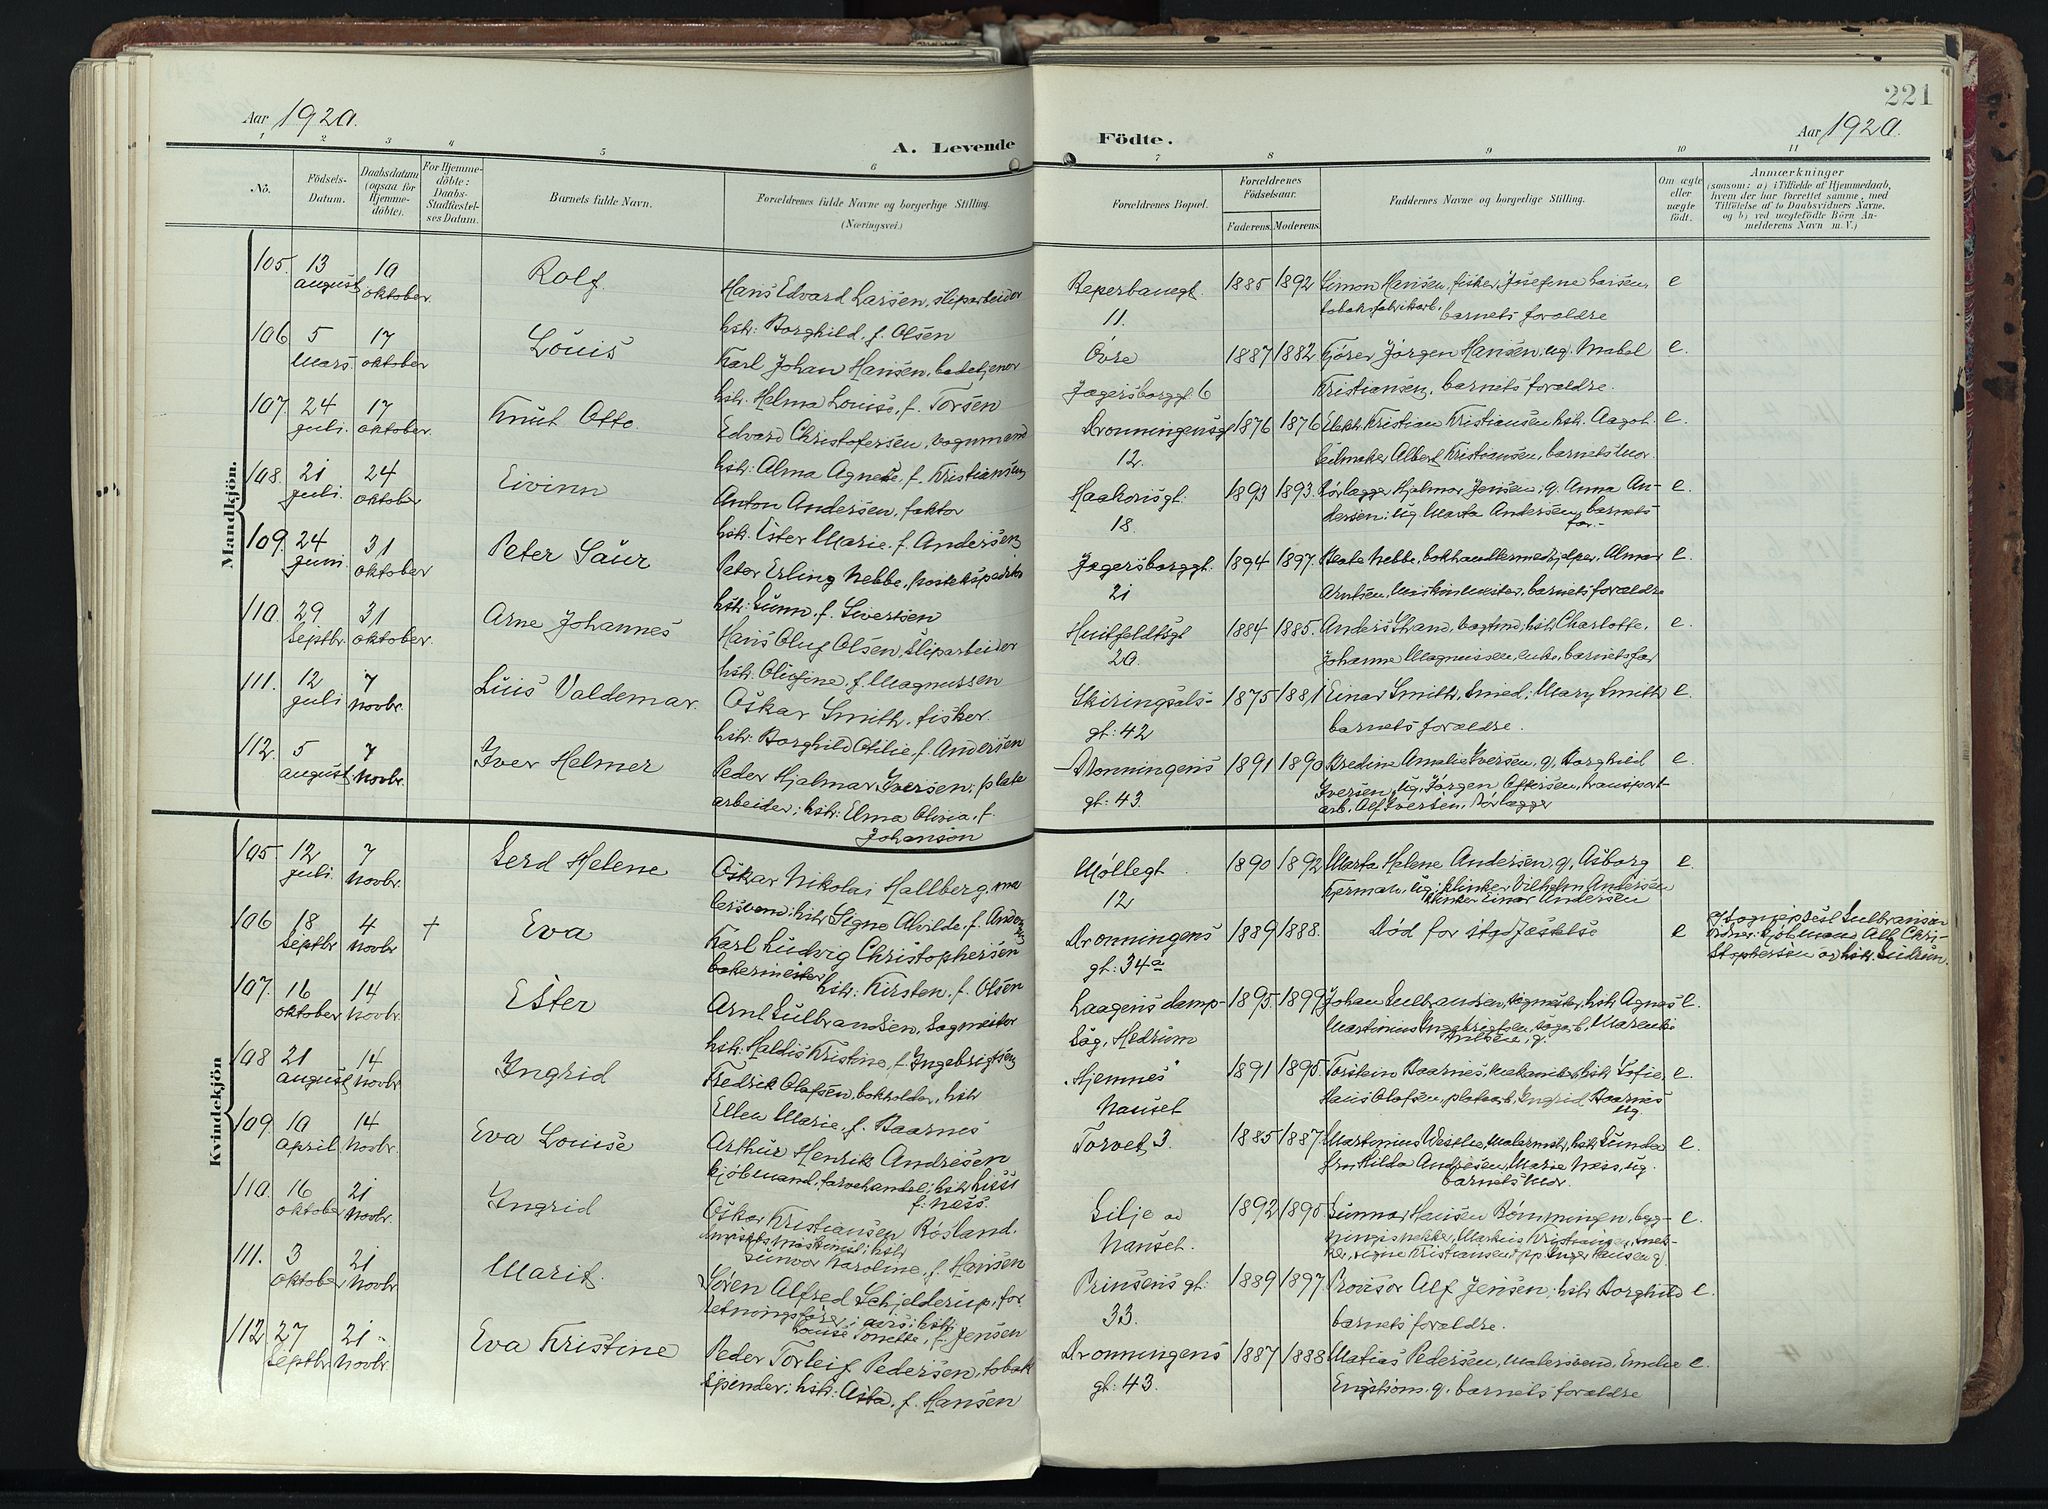 221
Aar 1920.
A. Levende
Födte.
Aar 1920.
1 2 3 4 5 6 7 8 9 10 11
No.
Födsels-
Datum.
Daabsdatum
(ogsaa for
Hjemme-
döbte).
For Hjemme-
döbte:
Daabs-
Stadfæstel-
ses Datum.
Barnets fulde Navn.
Forældrenes fulde Navne og borgerlige Stilling.
(Næringsvei.)
Forældrenes Bopæl.
Forældrenes
Födselsaar.
Faderens. Moderens.
Faddernes Navne og borgerlige Stilling.
Om ægte
eller
uægte
födt.
Anmærkninger
(saasom: a) i Tilfælde af Hjemmedaab,
hvem der har forrettet samme, med
Tilföielse af to Daabsvidners Navne,
og b) ved uægtefödte Börn An-
melderens Navn m. V.)
Mandkjön.
105. 13 august 10 oktober. Rolf.
Hans Edvard Larsen, sliparbeider
hstr: Borghild f. Olsen
Reperbanegt.
11.
1885 1892
Simon Hansen, fisker, Josefine Larsen,
tobaksfabrikarb., barnets forældre
e
106 5 Mars. 17 oktober Louis
Karl Johan Hansen, badetjener
hstr: Helma Louise, f. Torsen
Övre
Jægersborggt. 6
1887 1882
Jørgen Hansen, ug. Mabel
Kristiansen, barnets forældre.
e.
107. 24 juli. 17 oktober. Knut Otto.
Edvard Christofersen, vognmand
hstr: Alma Agnete, f. Kristiansen
Dronningensgt
12.
1876 1876
Kristian Kristiansen hstr. Aagot.
Seilmaker Albert Kristiansen, barnets mor.
e.
108. 21 juli. 24 oktober Eivinn
Anton Andersen, faktor
hstr: Ester Marie, f. Andersen
Haakonsgt.
18.
1893 1893.
Rørlægger Hjalmar Jensen, g. Anna An-
dersen; ug. Marta Andersen, barnets
far.
e.
109. 24 juni 31 oktober Peter Saur
Peter Erling Nebbe,
hstr: f. Sivertsen
Jægersborggt.
21
1894 1897.
Beate Nebbe, bokhandlermedhjelper, Almar
Arntsen, Maskinmester, barnets forældre
e
110. 29 Septbr. 31 oktober. Arne Johannes
Hans Oluf Olsen, sliparbeider
hstr: Olufine, f. Magnussen
Huitfeldtsgt
20.
1884 1885.
Anders Strand, vogtmd; hstr Charlotte,
Johanne Magnussen, enke, barnets far
e.
111. 12 juli 7 Novbr. Luis Valdemar.
Oskar Smith, fisker.
hstr: Borghild Otilie, f. Andersen
Skiringsals-
gt: 42
1875 1881
Einar Smith, Smed; Mary Smith
barnets forældre.
e.
112. 5 august 7 Novbr. Iver Helmer
Peder Hjalmar Iversen, plate
arbeider; hstr: Elma Olivia, f.
Johanson
Dronningens
gt: 43.
1891 1890
Bredine Amalie Iversen, g, Borghild
Iversen, ug, Jørgen Oftersen, transport-
arb. Alf Iversen, Rørlægger
e.
Kvindekjön
105 12 juli. 7 Novbr. Gerd Helene
Oskar Nikolai Hallberg, ma
lersvend; hstr Signe Alvilde, f. Ander
Møllegt.
12
1890 1892
Marta Helene Andersen, g, Asborg
ug; klinker Vilhelm Andersen
Klinker Einar Andersen
e
106 18 Septbr 4 Novbr. + Eva
Karl Ludvig Christophersen
bakermester, hstr: Kirsten, f. Olsen
Dronningens
gt: 34a
1889 1888.
Død for stadfæstelse
e
Gulbransen
Kjøbmand Alf Chri-
stophersen og hstr. Gudrun.
107. 16 oktober 14 Novbr. Ester
Arnt Gulbrandsen, Sagmester
hstr: Haldis Kristine, f. Ingebrigtsen
Laagens damp-
sag, Hedrum
1895 1899
Johan Gulbrandsen, sagmester, hstr Agnes
Martinius Ingebrigtsen, sagarb, Marenti
Nilsen, g.
e.
108 21 august 14 Novbr. Ingrid
Fredrik Olafsen, bokholder, hstr
Ellen Marie, f. Baarnes
"Hjemnes"
Nanset
1891 1895.
Torstein Baarnes, mekaniker, hstr Sofie,
Hans Olafsen, platearb, Ingrid Baarnes
ug.
e.
109 10 april 14 Novbr. Eva Louise
Arthur Henrik Andresen
kjøbmand, farvehandel; hstr Lissi
f. Ness.
Torvet 3.
1885 1887.
Martonius Westlie, malermstr, hstr Gunda
fru Hilda Andresen, Marie Ness, ug.
barnets mor.
e.
110. 16 oktober 21 Novbr. Ingrid
Oskar Kristiansen Røsland.
hstr
Gunvor Karoline, f. Hansen
Lilje
Nanset.
1892 1895
Gunnar Hansen Bømmingen, byg-
ningssnekker, Markus Kristiansen, snek-
ker, Signe Kristiansen, Inger Hansen g.
e.
111. 3 oktober 21 Novbr. Marit.
Søren Alfred Schjelderup, for
retningsfører; hstr:
Louise Tonette, f. Jensen
Prinsens gt:
33.
1889 1897.
Provisor Alf Jensen, hstr Borghild
barnets forældre.
e.
112 27 Septbr 21 Novbr. Eva Kristine
Peder Torleif Pedersen, tobak
spinder; hstr: Asta, f. Hansen
Dronningens
gt: 43.
1887 1888
Matias Pedersen, malersvend, Emelie
Engstrøm, g. barnets forældre
e.